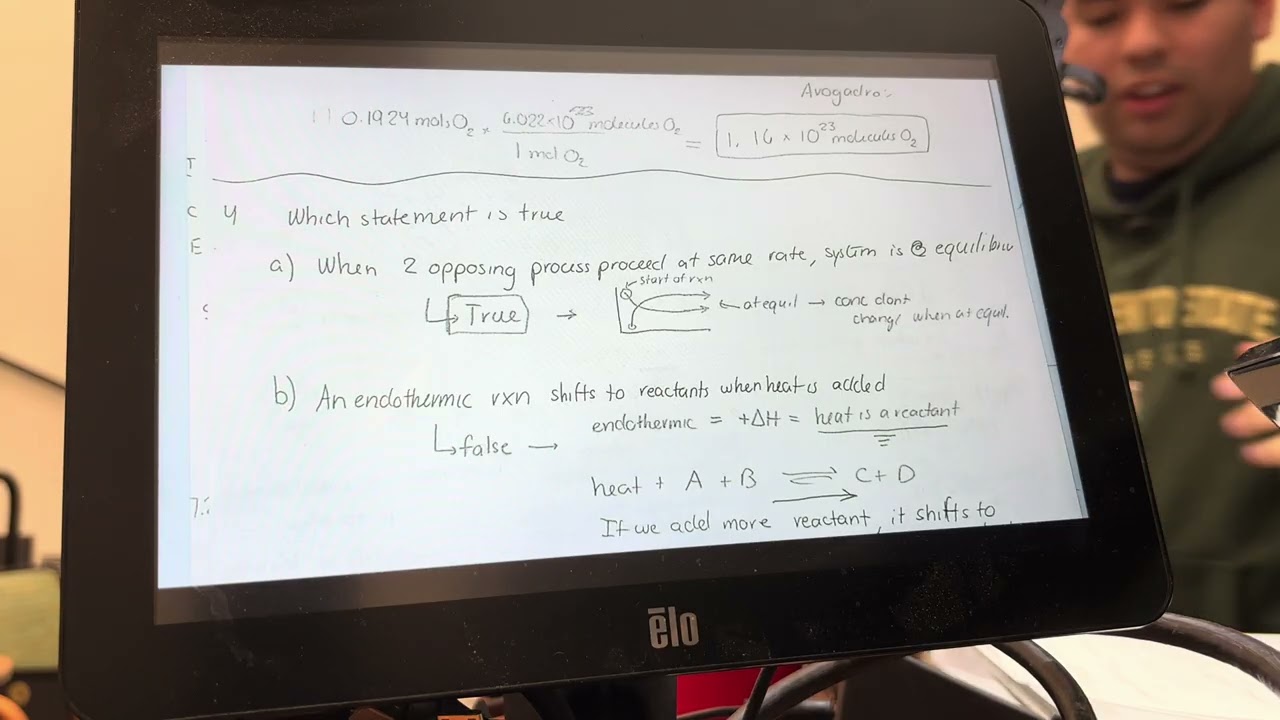 Avogadro:
0.1924 mols O2 × 6.022×10^23 molecules O2 / 1 mol O2 = 1.16 × 10^23 molecules O2
T
C 4 Which statement is true
E
a) When 2 opposing process proceed at same rate, system is @ equilibriu
start of rxn
↳ True → ← at equil → conc dont
change when at equil.
b) An endothermic rxn shifts to reactants when heat is added
endothermic = +ΔH = heat is a reactant
↳ false →
heat + A + B ⇌ C + D
If we add more reactant, it shifts to
ēlo